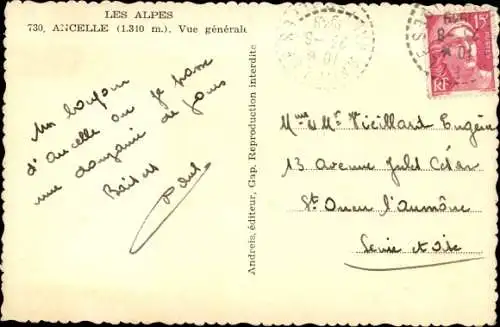 LES ALPES
730. ANCELLE (1.310 m.). Vue générale
Un bonjour
d'Ancelle où je passe
une douzaine de jours
Baisers
Paul
Andreis, éditeur, Gap. Reproduction interdite
Mme & Mr Vieillard Eugène
13 Avenue Jules César
St. Ouen l'aumône
Seine et Oise
15F
RF
1949